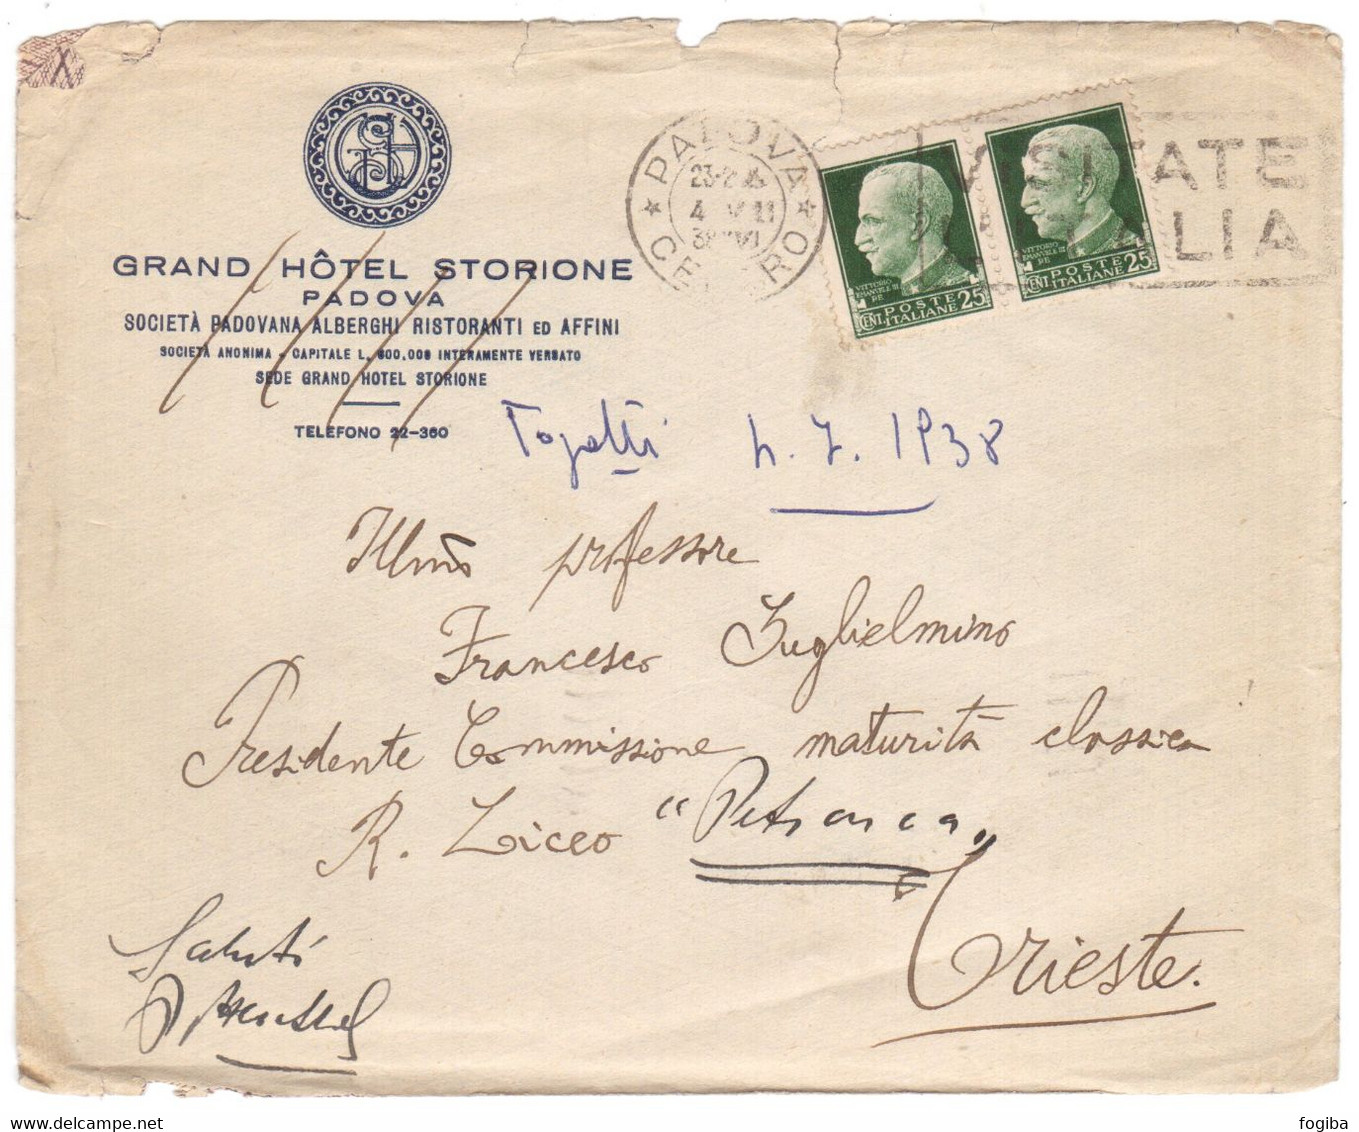 GRAND HÔTEL STORIONE
PADOVA
SOCIETÀ PADOVANA ALBERGHI RISTORANTI ED AFFINI
SOCIETÀ ANONIMA - CAPITALE L. 600.000 INTERAMENTE VERSATO
SEDE GRAND HOTEL STORIONE
TELEFONO 22-360
PADOVA
CENTRO
VISITATE
L'ITALIA
VITTORIO
EMANUELE III
RE
CENT. POSTE
ITALIANE 25
VITTORIO
EMANUELE III
RE
CENT. POSTE
ITALIANE 25
1938
Illmo professore
Francesco Guglielmino
Presidente Commissione maturità classica
R. Liceo "Petrarca"
Trieste.
Saluti
fogiba